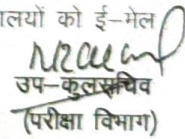 लयों को ई-मेल
उप-कुलसचिव
(परीक्षा विभाग)